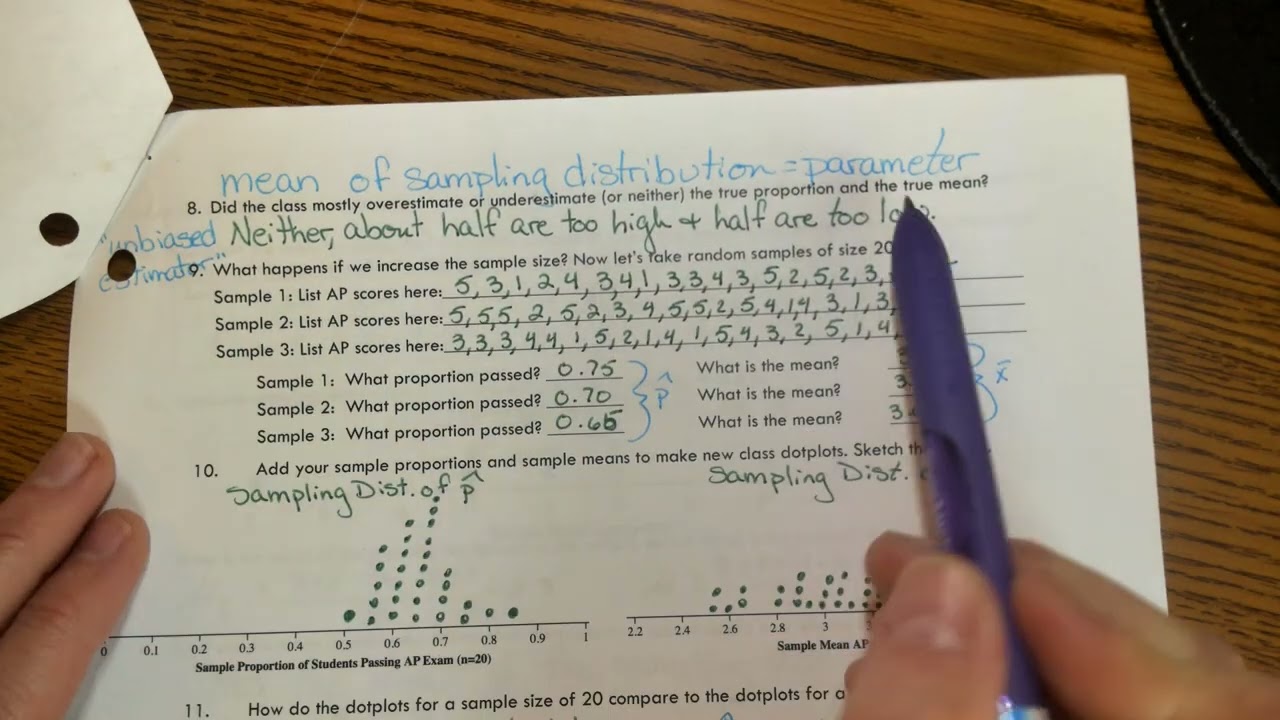 mean of sampling distribution = parameter
8. Did the class mostly overestimate or underestimate (or neither) the true proportion and the true mean?
"unbiased estimator"
Neither, about half are too high + half are too low.
9. What happens if we increase the sample size? Now let's take random samples of size 20
Sample 1: List AP scores here: 5, 3, 1, 2, 4, 3 4, 1, 3, 3, 4, 3, 5, 2, 5, 2, 3,
Sample 2: List AP scores here: 5, 5, 5, 2, 5, 2, 3, 4, 5, 5, 2, 5, 4, 1, 4, 3, 1, 3,
Sample 3: List AP scores here: 3, 3, 3, 4, 4, 1, 5, 2, 1, 4, 1, 5, 4, 3, 2, 5, 1, 4,
Sample 1: What proportion passed? 0.75 What is the mean?
Sample 2: What proportion passed? 0.70 p̂ What is the mean? 3. x̄
Sample 3: What proportion passed? 0.65 What is the mean? 3.
10. Add your sample proportions and sample means to make new class dotplots. Sketch
Sampling Dist. of p̂ Sampling Dist.
0 0.1 0.2 0.3 0.4 0.5 0.6 0.7 0.8 0.9 1
Sample Proportion of Students Passing AP Exam (n=20)
2.2 2.4 2.6 2.8 3
Sample Mean AP
11. How do the dotplots for a sample size of 20 compare to the dotplots for a